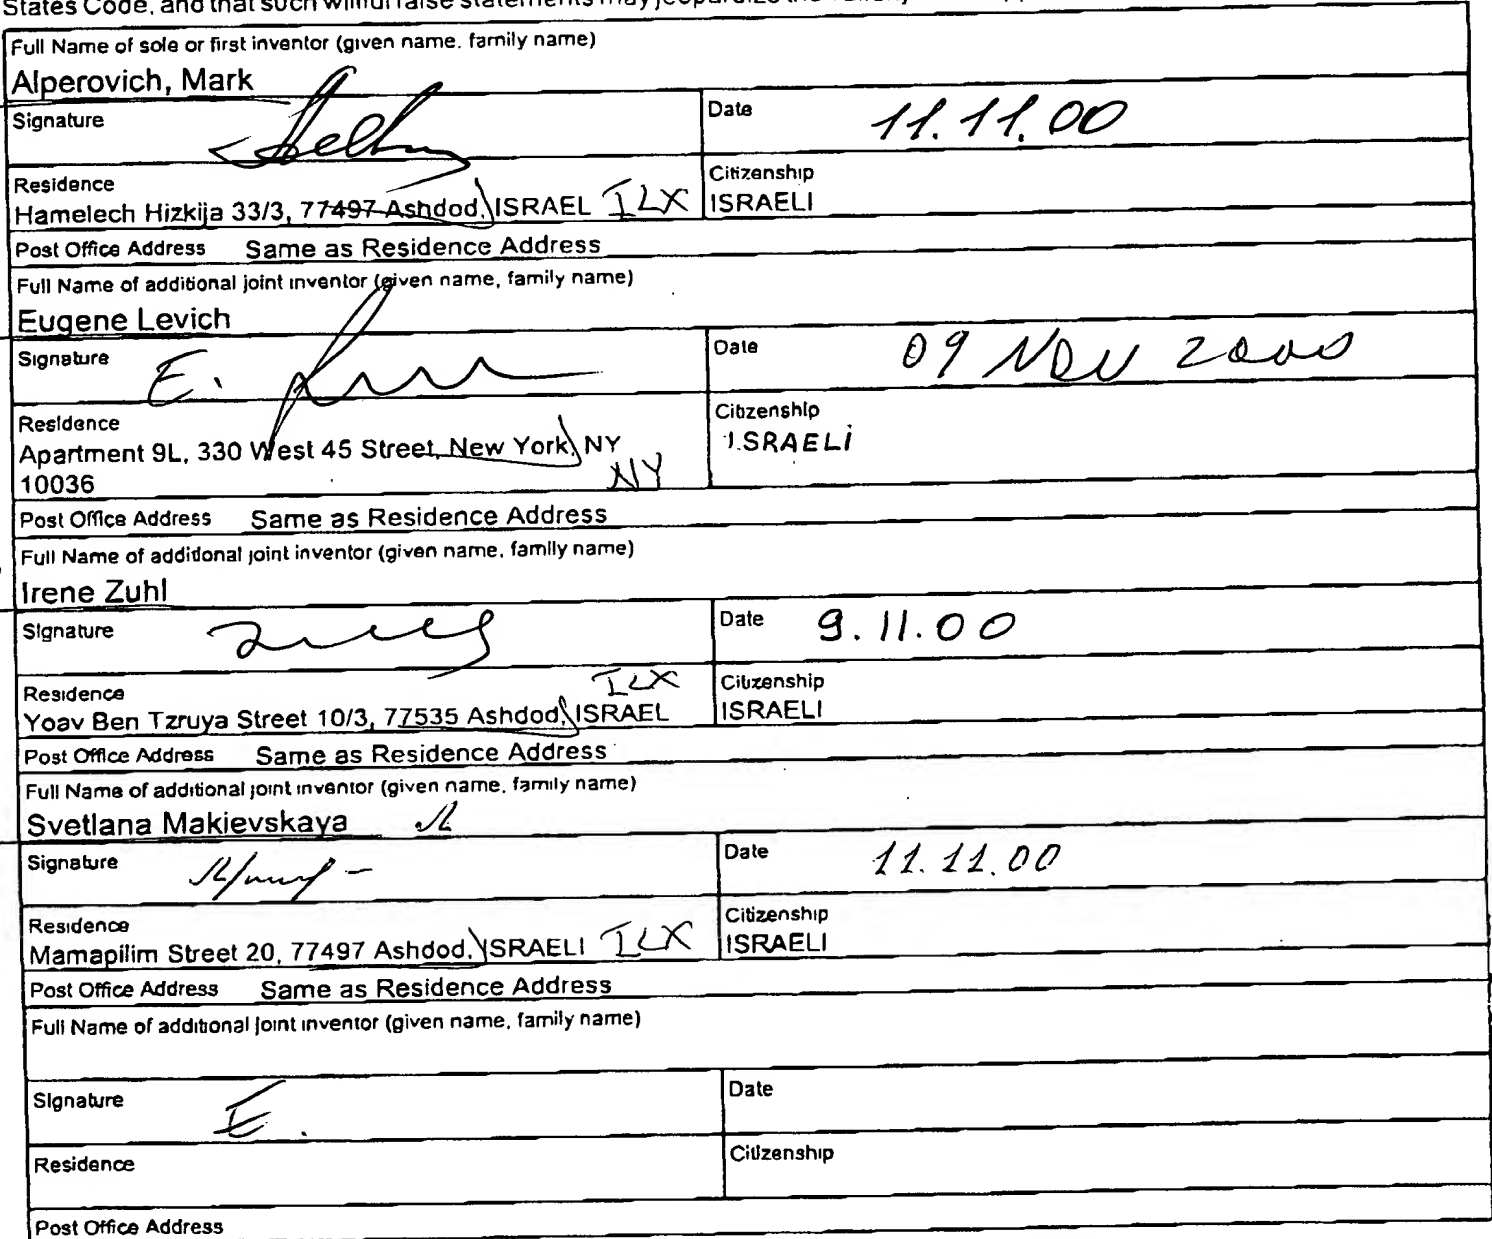 Full Name of sole or first inventor (given name, family name)
Alperovich, Mark
Signature
Date 11.11.00
Residence
Hamelech Hizkija 33/3, 77497 Ashdod, ISRAEL ILX
Citizenship
ISRAELI
Post Office Address Same as Residence Address
Full Name of additional joint inventor (given name, family name)
Eugene Levich
Signature E.
Date 09 NOV 2000
Residence
Apartment 9L, 330 West 45 Street, New York, NY
10036 NY
Citizenship
ISRAELI
Post Office Address Same as Residence Address
Full Name of additional joint inventor (given name, family name)
Irene Zuhl
Signature
Date 9.11.00
Residence ILX
Yoav Ben Tzruya Street 10/3, 77535 Ashdod, ISRAEL
Citizenship
ISRAELI
Post Office Address Same as Residence Address
Full Name of additional joint inventor (given name, family name)
Svetlana Makievskaya
Signature
Date 11.11.00
Residence
Mamapilim Street 20, 77497 Ashdod, ISRAELI ILX
Citizenship
ISRAELI
Post Office Address Same as Residence Address
Full Name of additional joint inventor (given name, family name)
Signature E.
Date
Residence
Citizenship
Post Office Address